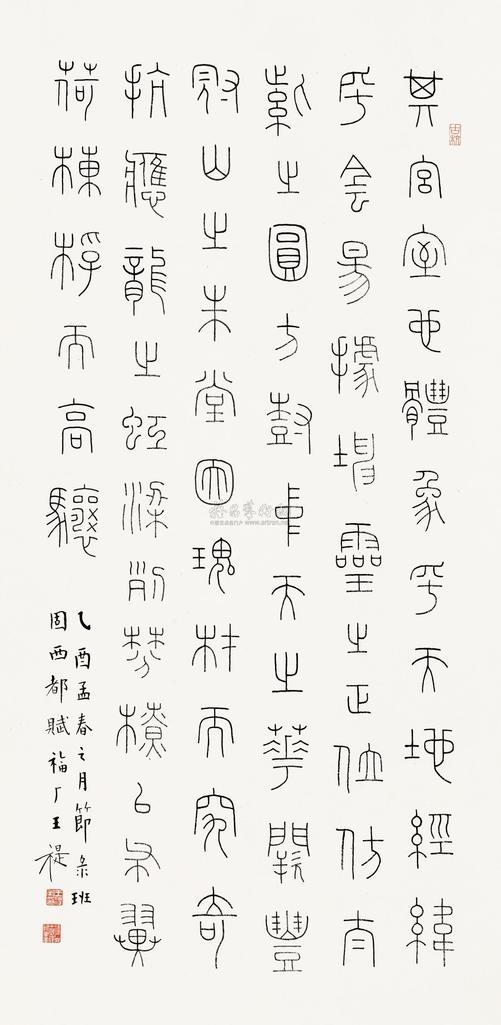 其宮室也體象乎天地經緯
乎侌昜據坤靈之正位仿太
紫之圓方尌中天之華闕豐
冠山之朱堂因瑰材而究奇
抗應龍之虹梁列棼橑以布翼
荷棟桴而高驤
乙酉孟春之月節彔班
固西都賦福厂王禔